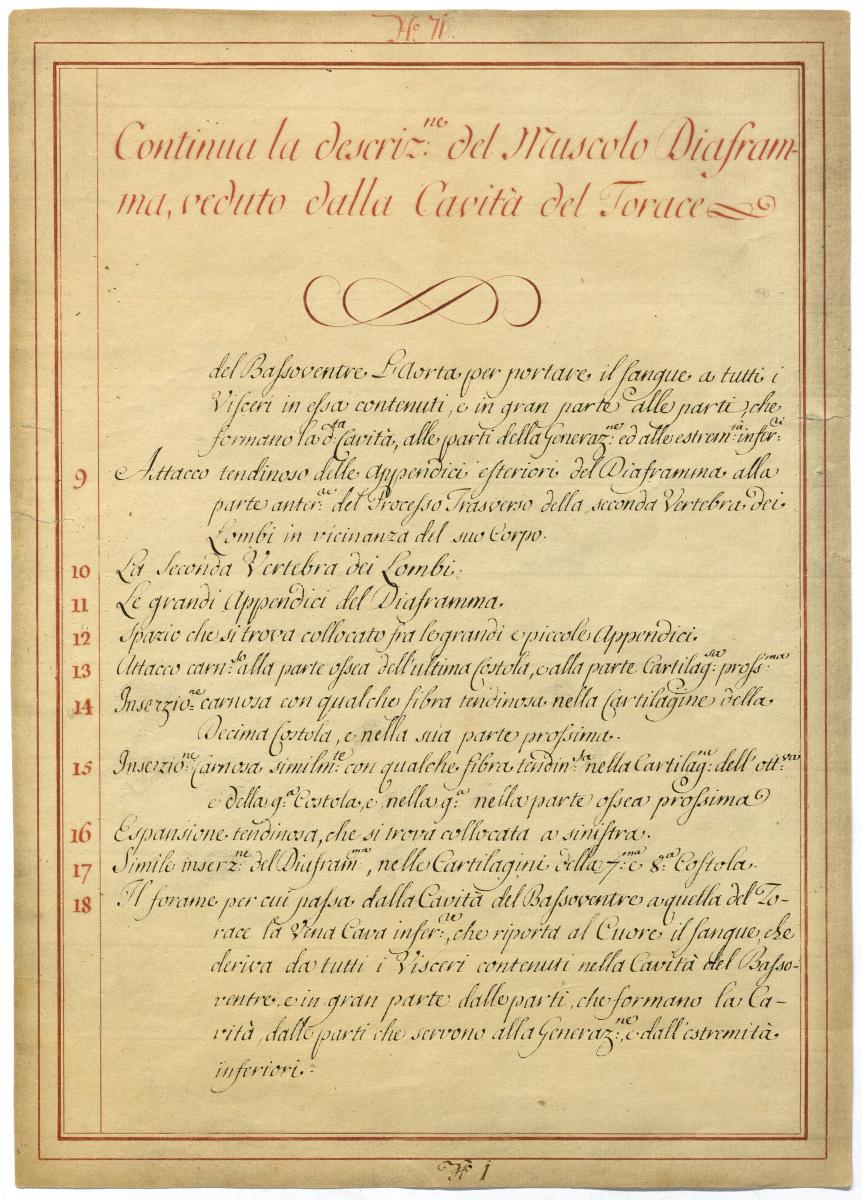 No. 71.
Continua la descriz.ne del Muscolo Diafram-
ma, veduto dalla Cavità del Torace
del Bassoventre L'Aorta per portare il sangue a tutti i
Visceri in essa contenuti, e in gran parte alle parti, che
formano la d.ta Cavità, alle parti della Generaz.ne ed alle estrem.tà infer.ri
9 Attacco tendinoso delle Appendici esteriori del Diaframma alla
parte anter.re del Processo Trasverso della seconda Vertebra dei
Lombi in vicinanza del suo Corpo.
10 La Seconda Vertebra dei Lombi.
11 Le grandi Appendici del Diaframma.
12 Spazio che si trova collocato fra le grandi e piccole Appendici.
13 Attacco carn.so alla parte ossea dell'ultima Costola, e alla parte Cartilag.sa pross.ma
14 Inserzio.ne carnosa con qualche fibra tendinosa nella Cartilagine della
Decima Costola, e nella sua parte prossima.
15 Inserzio.ne Carnosa similm.te con qualche fibra tendin.sa nella Cartilag.ne dell'ott.va
e della 9.a Costola, e nella 9.a nella parte ossea prossima
16 Espansione tendinosa, che si trova collocata a sinistra.
17 Simile inserz.ne del Diafram.ma, nelle Cartilagini della 7.ma e 8.a Costola.
18 Il forame per cui passa dalla Cavità del Bassoventre a quella del To-
race la Vena Cava infer.re, che riporta al Cuore il sangue, che
deriva da tutti i Visceri contenuti nella Cavità del Basso-
ventre, e in gran parte dalle parti, che formano la Ca-
vità, dalle parti che servono alla Generaz.ne, e dall'estremità
inferiori.